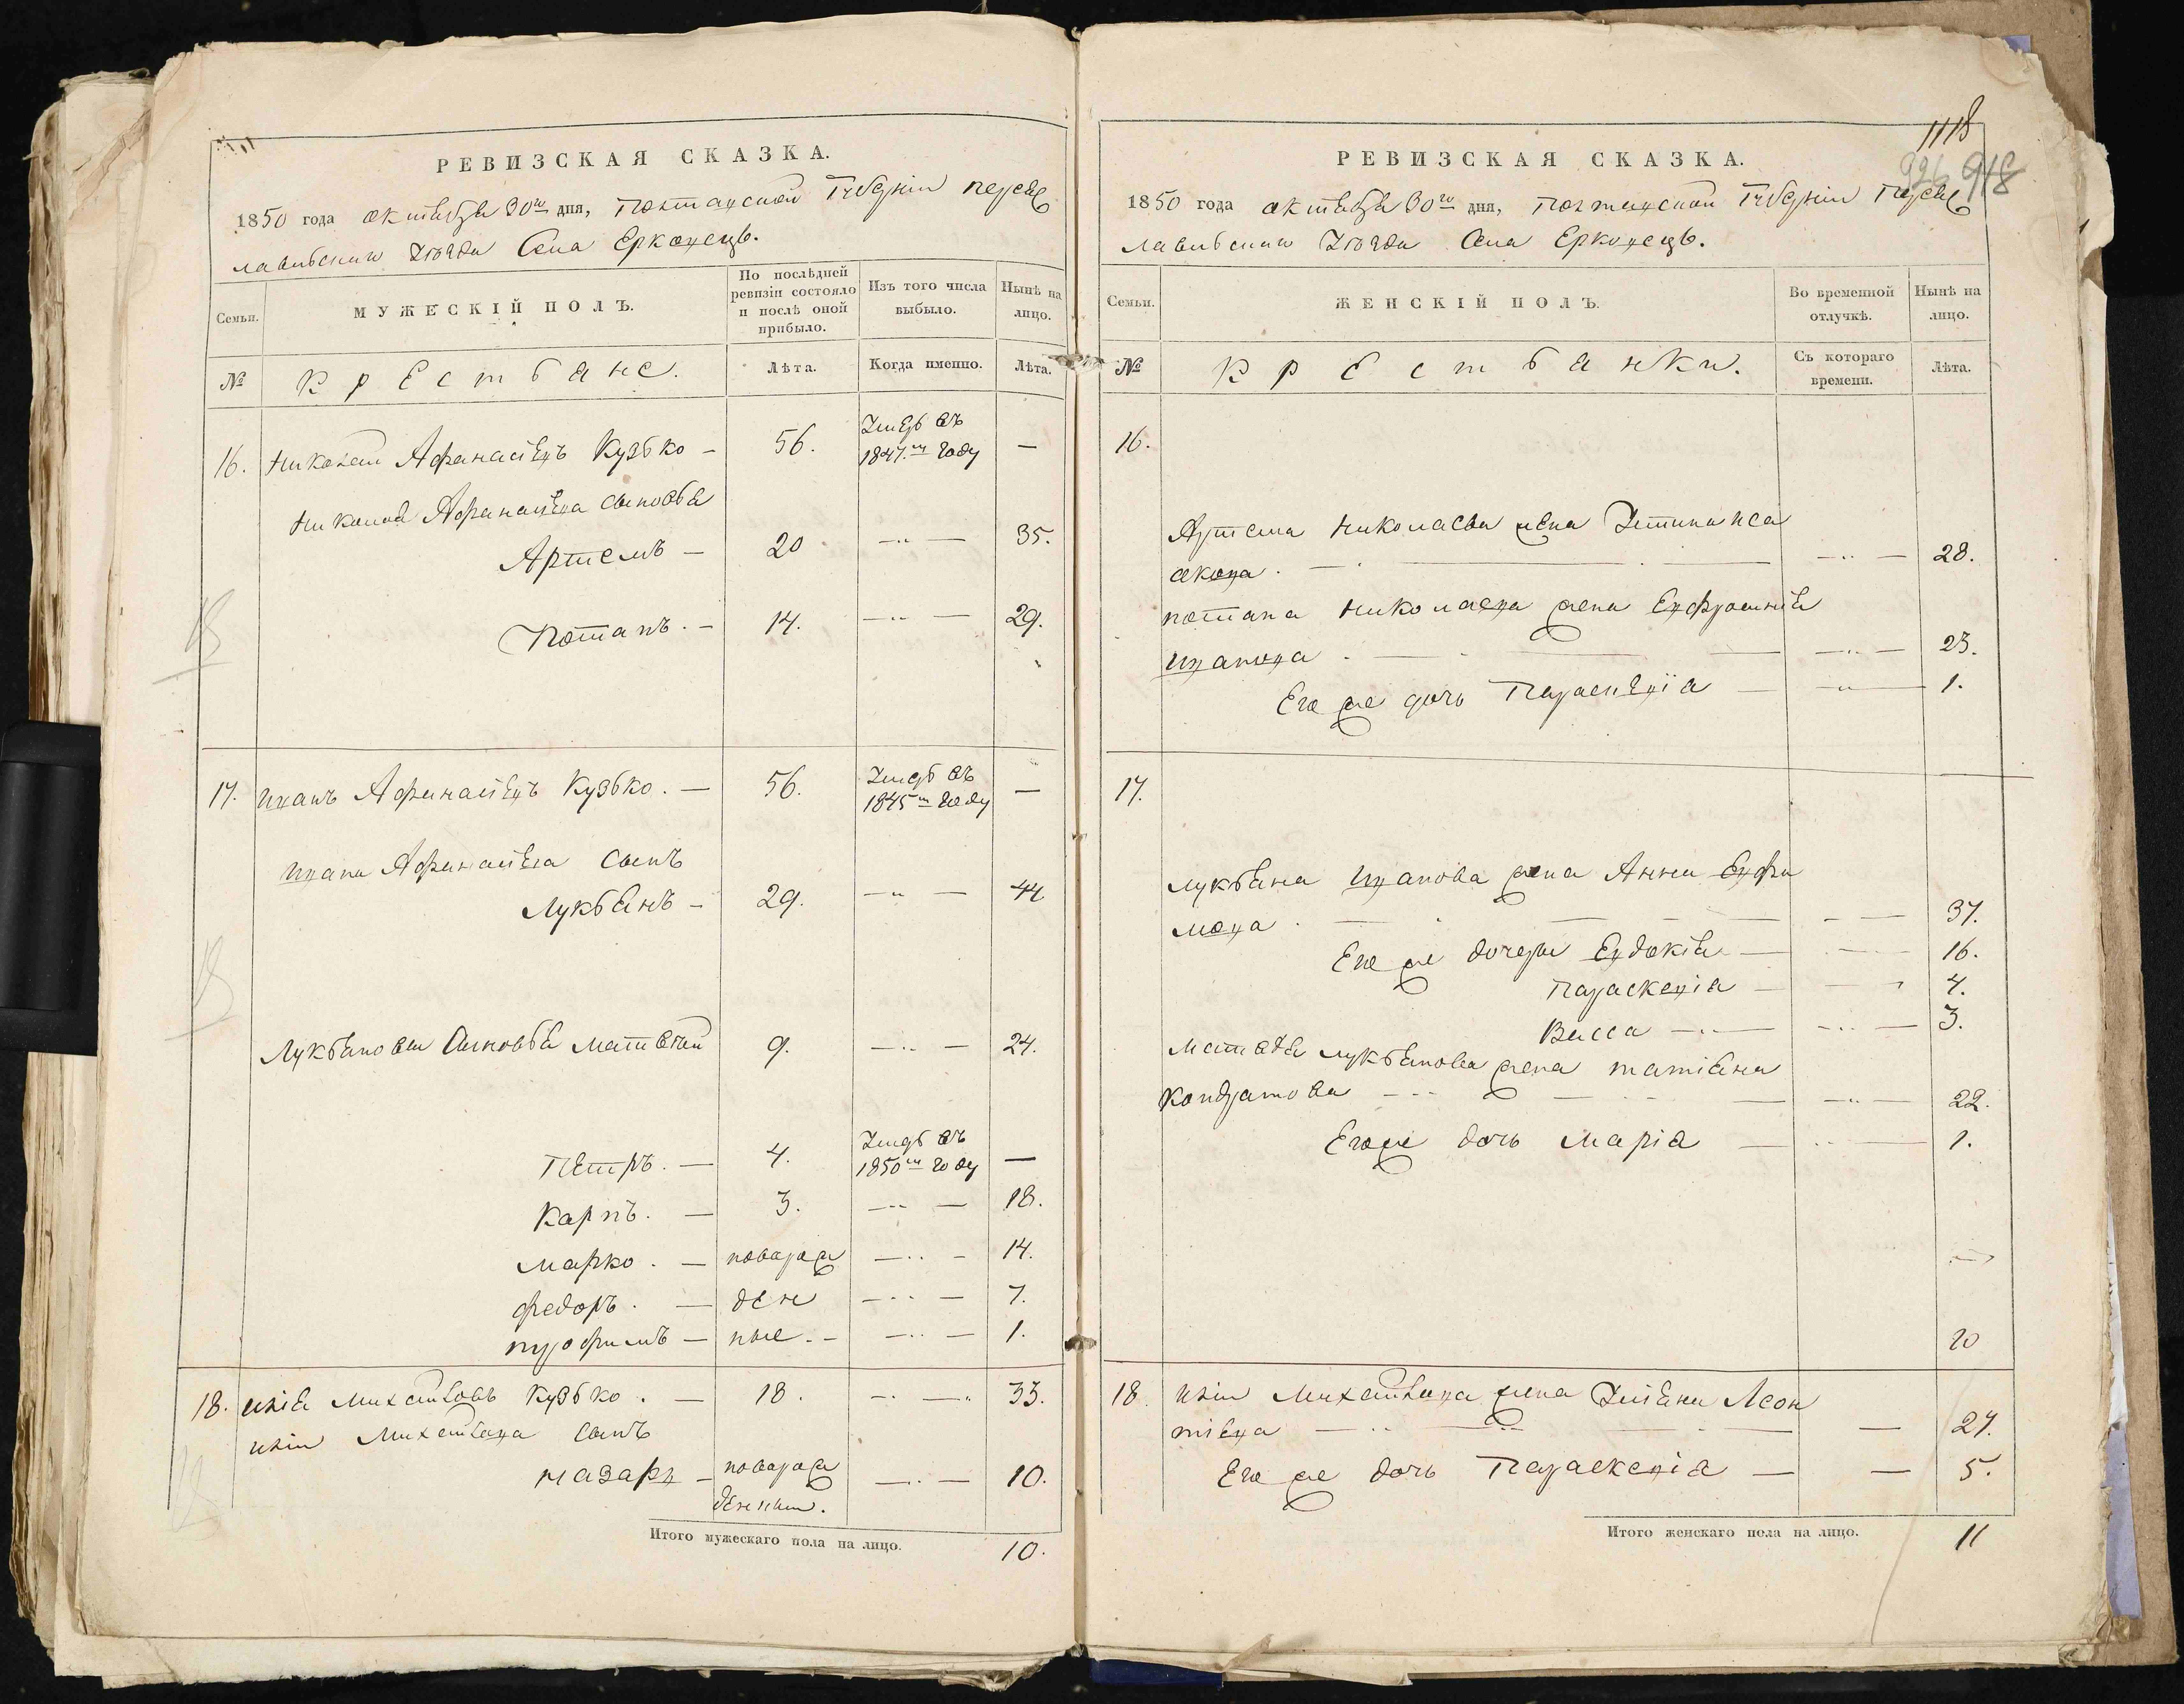 РЕВИЗСКАЯ СКАЗКА.
1850 года октября 30го дня, Полтавской Губернiи переяс
лавльскаго Уѣзда Села Ерковець.
Семьи.
МУЖЕСКIЙ ПОЛЪ.
По послѣдней ревизiи состояло и послѣ оной прибыло.
Изъ того числа выбыло.
Нынѣ на лицо.
№
Крестьяне.
Лѣта.
Когда именно.
Лѣта.
16. Николай Афанасiевъ Кузько — 56. Умеръ въ 1847м году —
Николая Афанасiева сыновья
Артемъ — 20 — 35.
Потапъ. — 14. — 29.
17. Иванъ Афанасiевъ Кузько. — 56. Умеръ въ 1845м году —
Ивана Афанасiева сынъ
Лукьянъ — 29. — 44
Лукьяновы Сыновья Матвѣй 9. — 24.
Петръ. — 4. Умеръ въ 1850м году —
Карпъ. — 3. — 18.
Марко. — новорож — 14.
Федоръ. — ден — 7.
трофимъ — ные. — 1.
18. Илiя Михайловъ Кузько. — 18. — 33.
Илiи Михайлова Сынъ
назаръ — новорож — 10.
денный.
Итого мужескаго пола на лицо. 10.
1118
926 918
РЕВИЗСКАЯ СКАЗКА.
1850 года октября 30го дня, Полтавской Губернiи Переяс
лавльскаго Уѣзда Села Ерковець.
Семьи.
ЖЕНСКIЙ ПОЛЪ.
Во временной отлучкѣ.
Нынѣ на лицо.
№
Крестьянки.
Съ котораго времени.
Лѣта.
16.
Артема Николаева жена
28.
потапа Николаева жена Евфросинiя
Иванова — 23.
Его же дочь Параскевiя — 1.
17.
Лукьяна Иванова жена Анна Евфи
мова — 37.
Его же дочери Евдокiя — 16.
Параскевiя — 4.
Васса — 3.
Матвѣя Лукьянова жена татiяна
Кондратова — 22.
Его же дочь Марiя — 1.
10
18. Илiи Михайлова жена Улiяна Леон
тiева — 27.
Его же дочь Параскевiя — 5.
Итого женскаго пола на лицо. 11